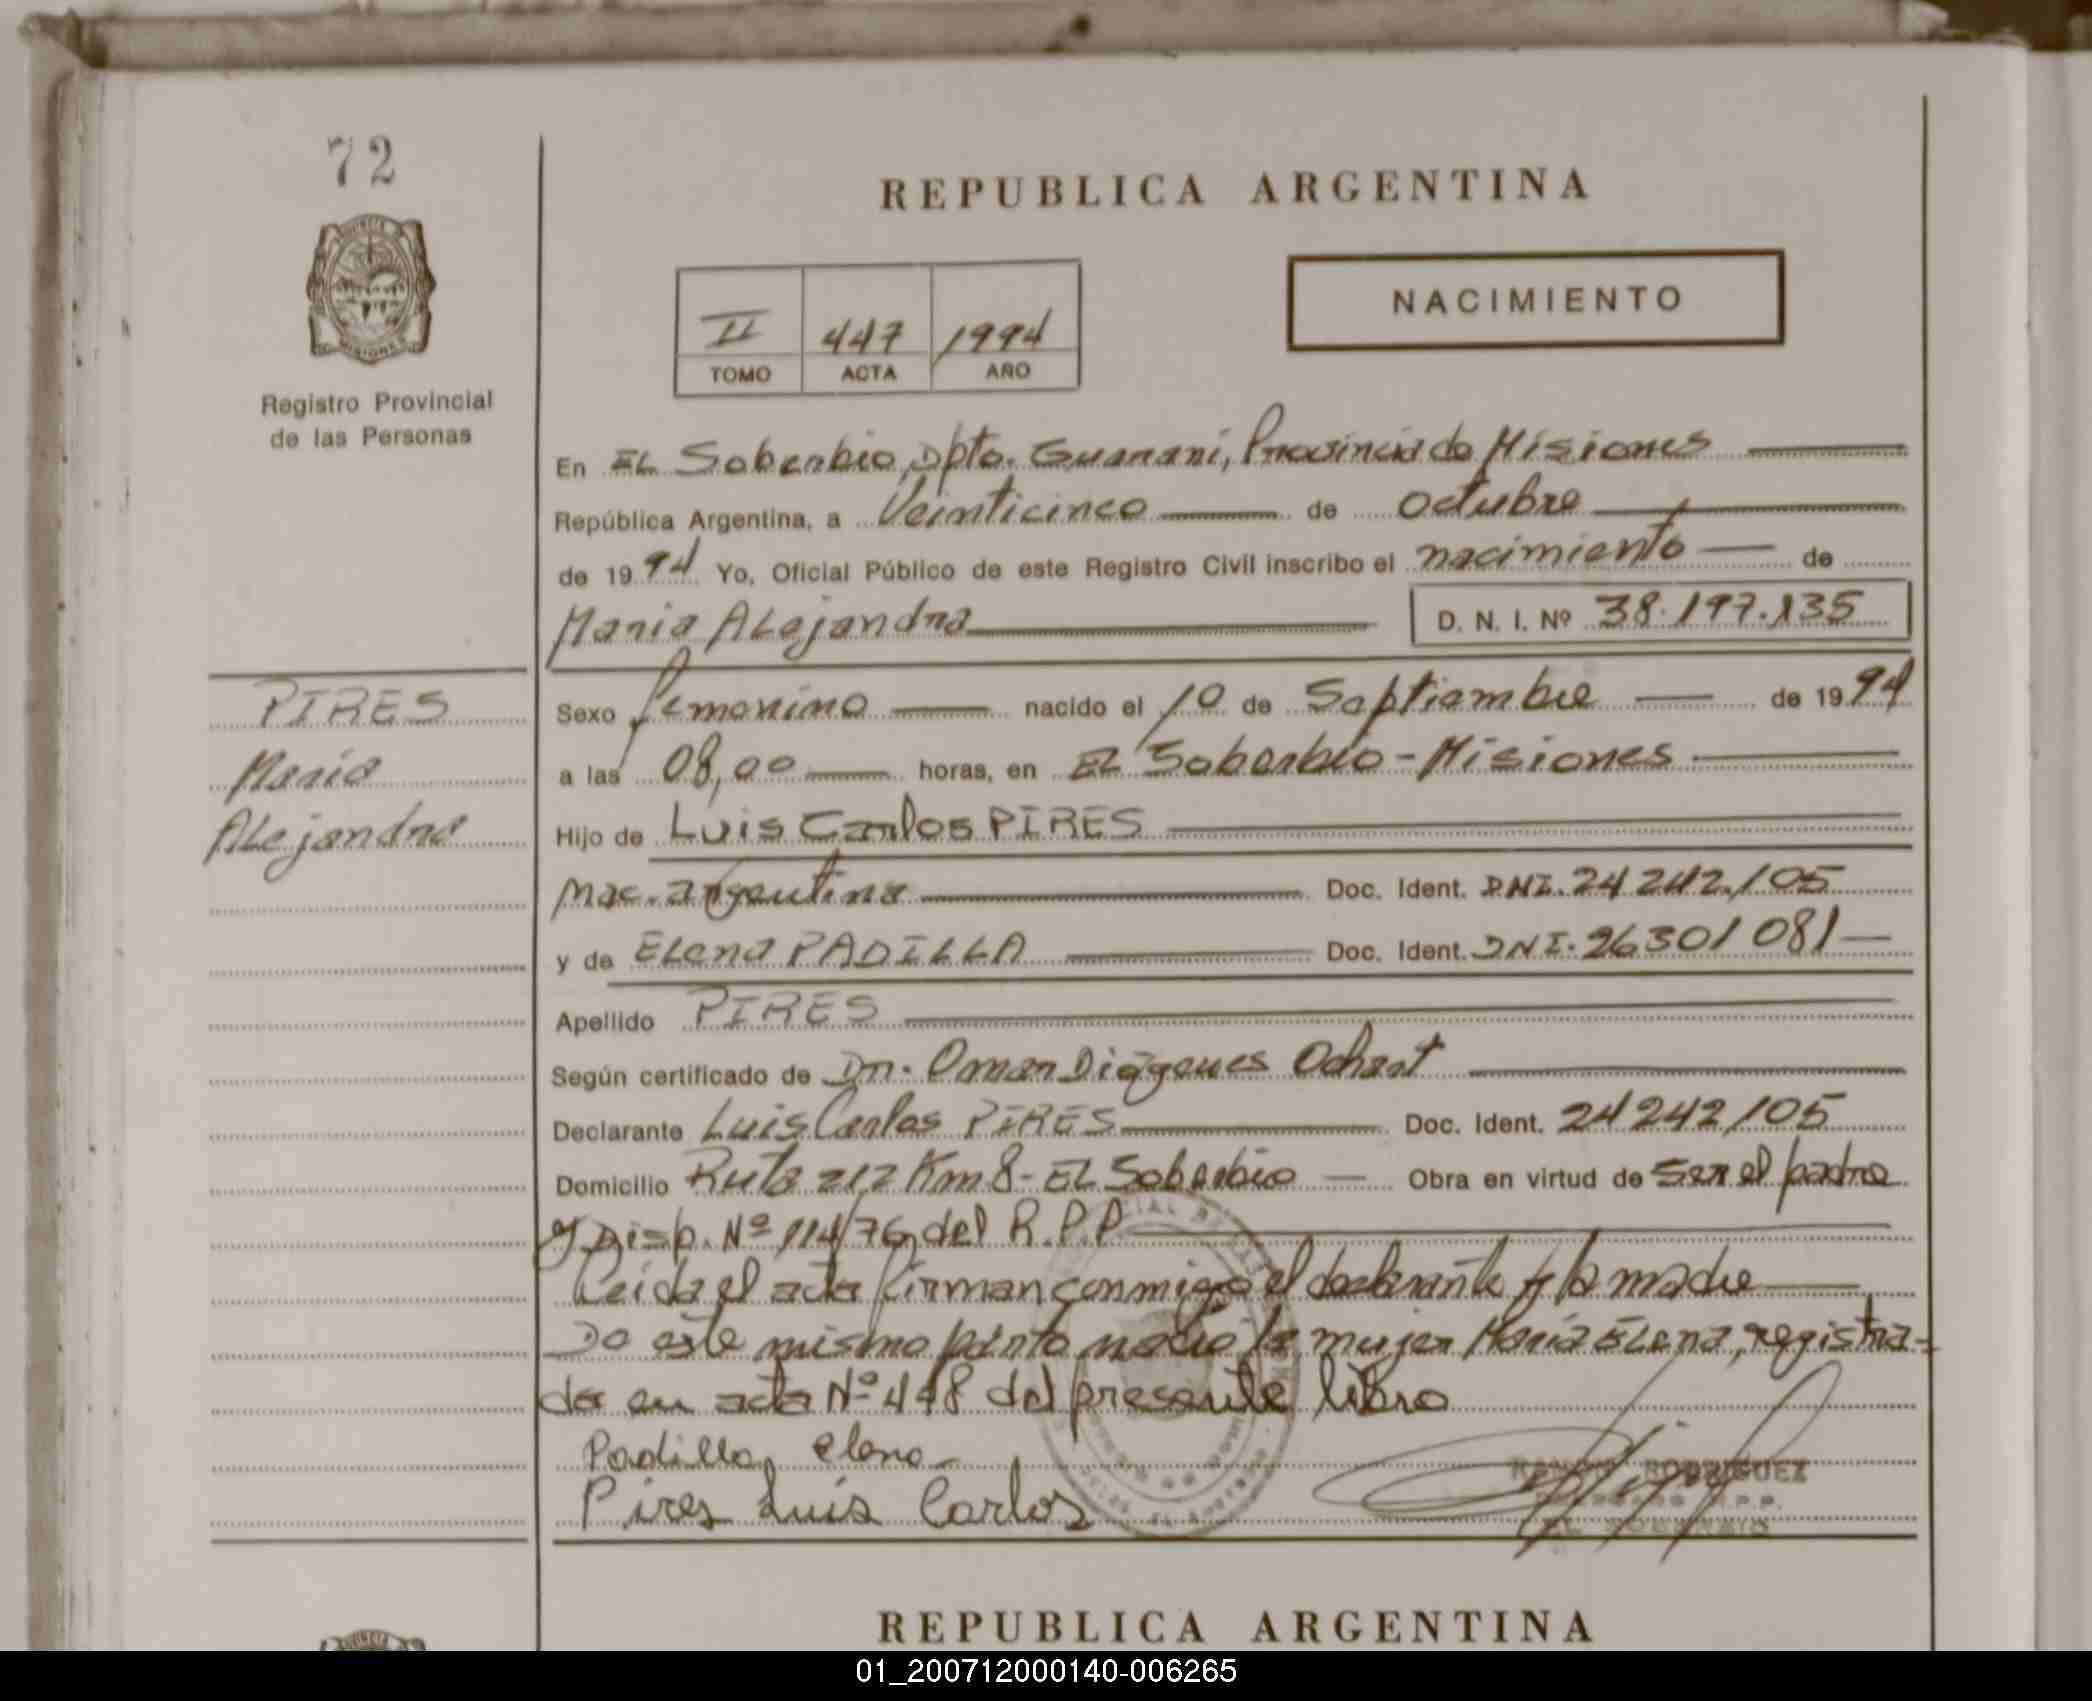 72
REPUBLICA ARGENTINA
NACIMIENTO
II 447 1994
TOMO ACTA AÑO
Registro Provincial
de las Personas
En EL Soberbio, Dpto. Guarani, Provincia de Misiones
República Argentina, a Veinticinco de octubre
de 1994 Yo, Oficial Público de este Registro Civil inscribo el nacimiento de
Maria ALejandra D. N. I. Nº 38.197.135
PIRES
Maria
ALejandra
Sexo femenino nacido el 10 de Septiembre de 1994
a las 08,00 horas, en EL Soberbio - Misiones
Hijo de Luis Carlos PIRES
Nac. argentina Doc. Ident. DNI. 24 242.105
y de ELena PADILLA Doc. Ident. DNI. 26301081
Apellido PIRES
Según certificado de Dr. Omar Diógenes
Declarante Luis Carlos PIRES Doc. Ident. 24 242105
Domicilio Ruta 212 Km 8 - EL Soberbio Obra en virtud de ser el padre
y Disp. Nº 114/76 del R.P.P.
Leida el acta firman conmigo el declarante y la madre
De este mismo parto nació la mujer María ELena, registra-
da en acta Nº 448 del presente libro
Padilla, elena
Pires Luis Carlos
RODRIGUEZ
R.P.P.
EL SOBERBIO
REPUBLICA ARGENTINA
01_200712000140-006265